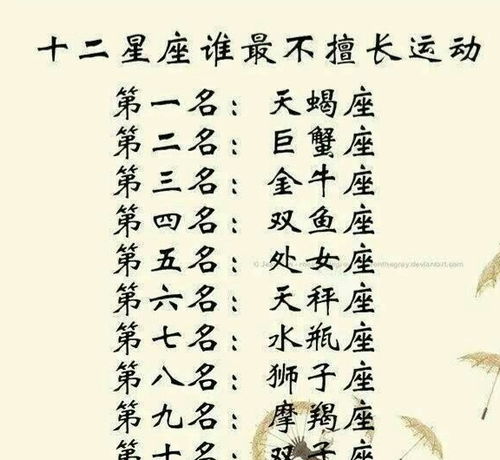 十二星座谁最不擅长运动
第一名：天蝎座
第二名：巨蟹座
第三名：金牛座
第四名：双鱼座
第五名：处女座
第六名：天秤座
第七名：水瓶座
第八名：狮子座
第九名：摩羯座
第十名：双子座